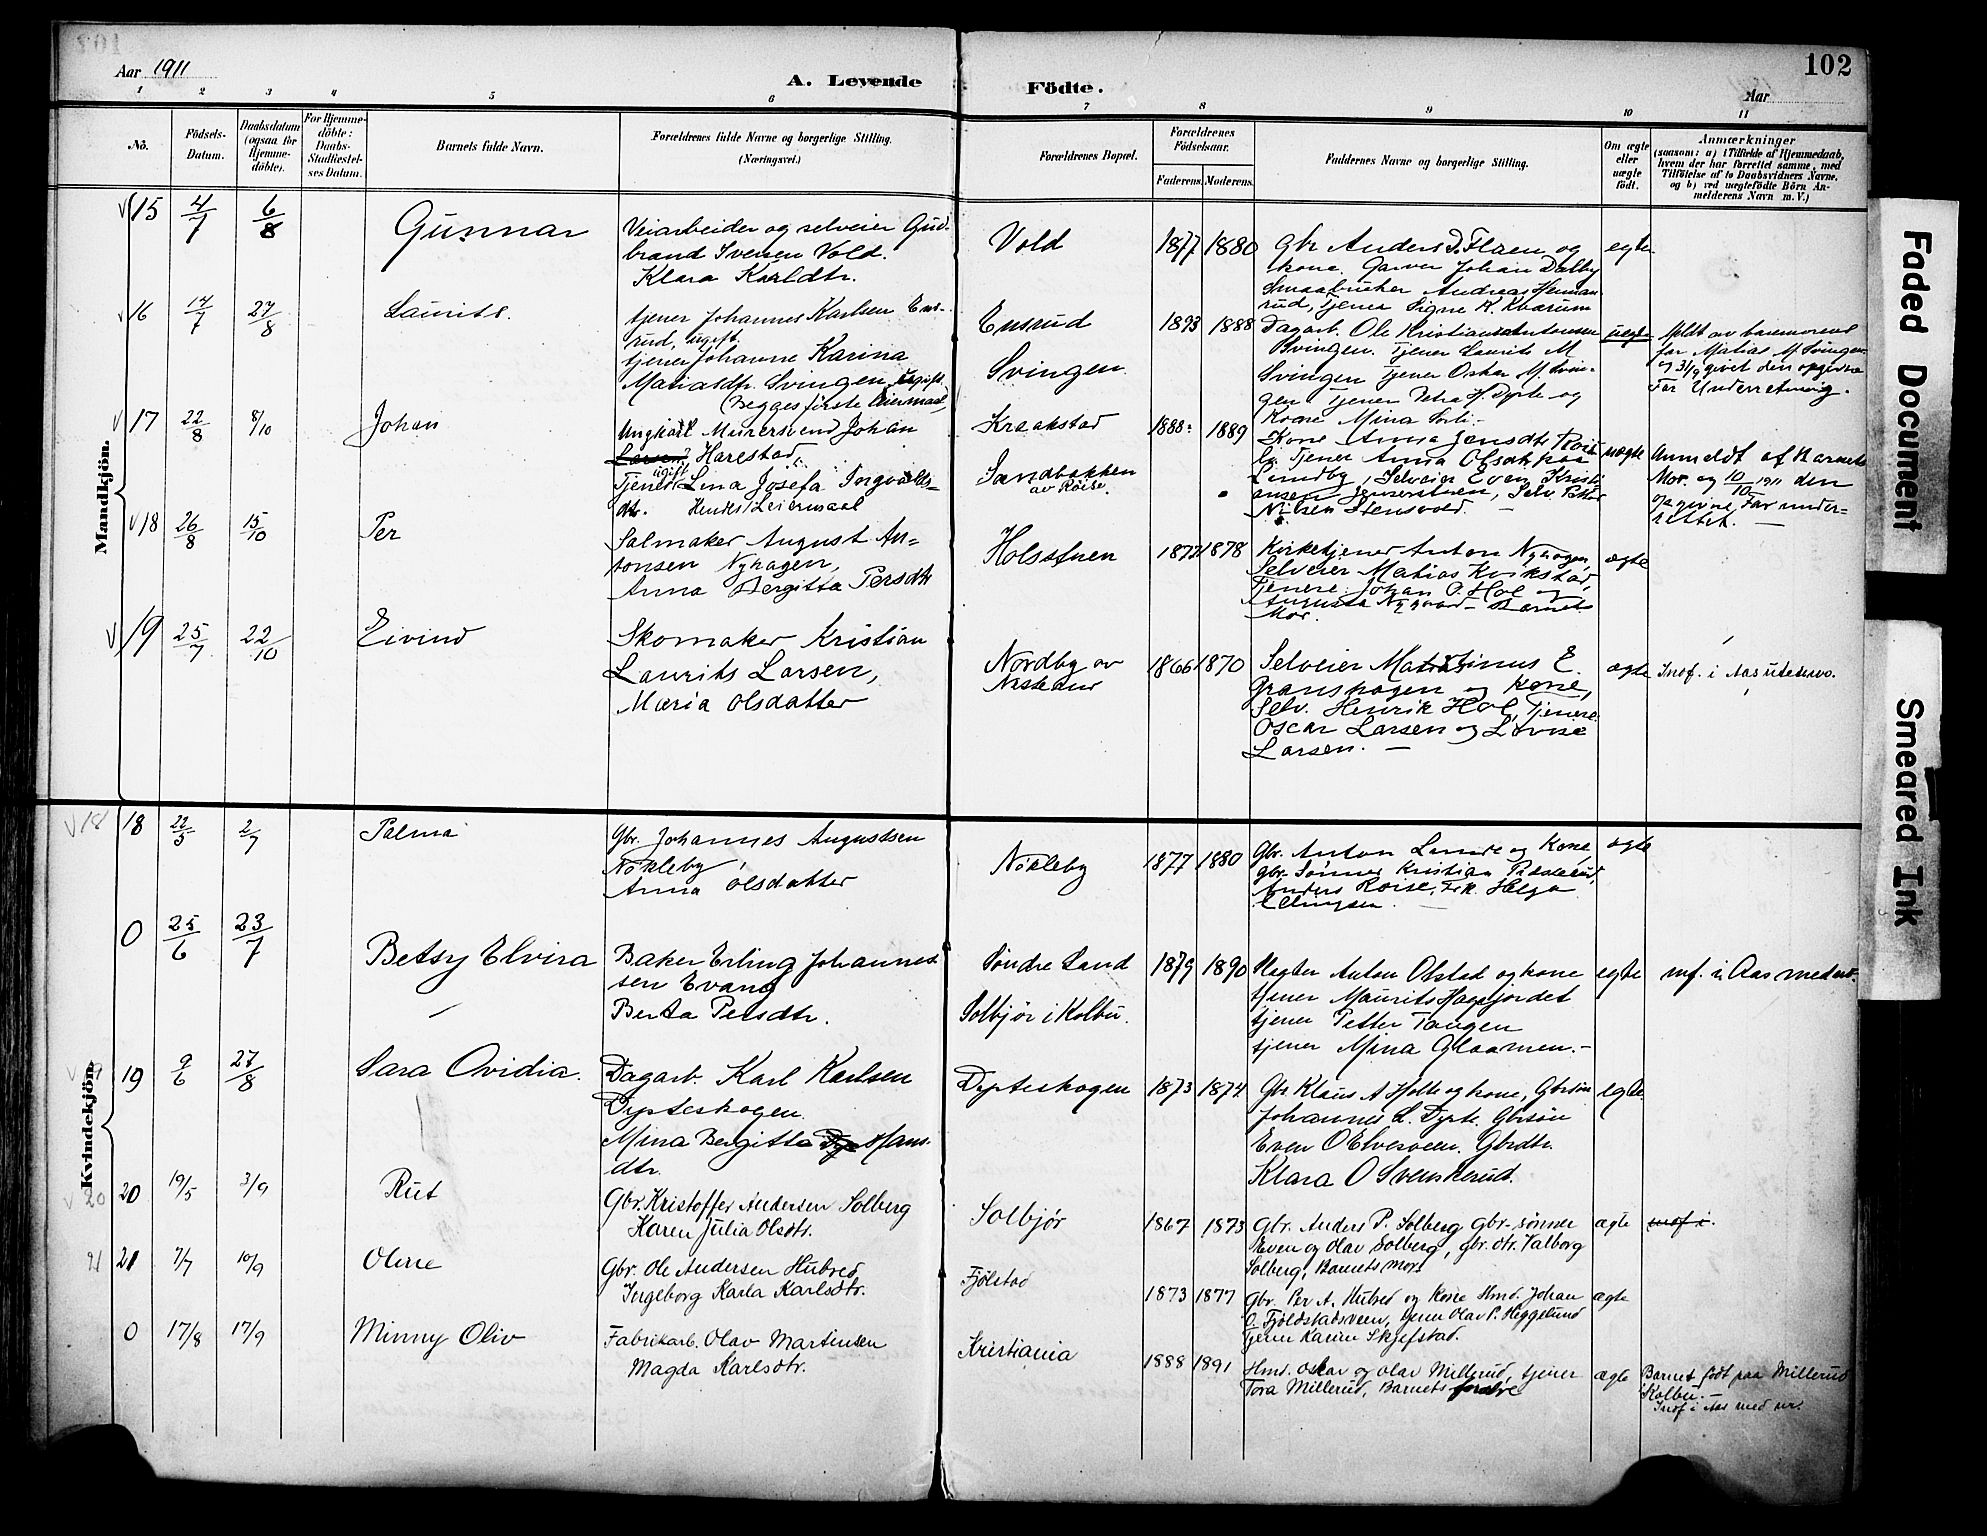 102
Aar 1911
A. Levende
Födte.
Aar
1 2 3 4 5 6 7 8 9 10 11
No.
Födsels-
Datum.
Daabsdatum
(ogsaa for
Hjemme-
döbte).
For Hjemme-
döbte:
Daabs-
Stadfæstel-
ses Datum.
Barnets fulde Navn.
Forældrenes fulde Navne og borgerlige Stilling.
(Næringsvei.)
Forældrenes Bopæl.
Forældrenes
Födselsaar.
Faderens. Moderens.
Faddernes Navne og borgerlige Stilling.
Om ægte
eller
uægte
födt.
Anmærkninger
(saasom: a) i Tilfælde af Hjemmedaab,
hvem der har forrettet samme, med
Tilföielse af to Daabsvidners Navne,
og b) ved uægtefödte Börn An-
melderens Navn m.V.)
Mandkjön.
15 4/7 6/8 Gunnar
Veiarbeider og selveier Gud-
brand Svenen Vold.
Klara Karldtr.
Vold 1877 1880
Gbr Anders D. Flzen og
kone. Garver Johan Dalby
Smaabruker Andreas Herman-
rud, Tjener Signe K. Kvarum
egte
16 17/7 27/8 Laurits.
tjener Johannes Karlsen Ens-
rud, ugift.
tjener Johanne Karina
Matiasdtr. Svingen, ugift.
(Begges første leiermaal)
Ensrud
Svingen
1893 1888
Dagarb. Ole Kristian Antonsen
Svingen. Tjener Laurits M
Svingen Tjener Oskar M. Svin-
gen Tjener Petra H. Dyste og
Kone Mina
uegte
Meldt av barnemoren
for Matias M Svingen
og 31/8 givet den opgivne
Far Underretning.
17 22/8 8/10 Johan
Ungkarl Murersvend Johan
Larsen Harestad,
ugift
Tjener Lina Josefa Ingvalds-
dtr. Hendes Leiermaal
Kraakstad
Sandbakken
av Röise.
1888. 1889
Kone Anna Jensdtr
Tjener Anna Olsdtr
Lundby, Selveier Even Kristi-
ansen, Selv. Petter
Nilsen Stensvold.
uægte
Anmeldt af Barnets
Mor. og 10/10 1911 den
opgivne Far under-
rettet. —
18 26/8 15/10 Per
Salmaker August An-
tonsen Nyhagen,
Anna Bergitta Persdtr
Holsstuen 1877 1878
Kirketjener Anton Nyhagen,
Selveier Matias Kvikstad,
Tjenere Johan O. Hol og
Augusta Nygaard — Barnets
Mor.
ægte
19 25/7 22/10 Eivind
Skomaker Kristian
Laurits Larsen,
Maria Olsdatter
Nordby av
1866 1870
Selveier Martinus E.
Granshagen og Kone,
Selv. Henrik Hol, Tjenere
Oscar Larsen og Lovise
Larsen. —
ægte
Indf. i Aas
Kvindekjön.
18 18 22/5 2/7 Palma
Gbr. Johannes Augustsen
Nökleby,
Anna Olsdatter
Nökleby 1877 1880
Gbr. Anton Lunde og Kone,
gbr. Sönner Kristian
Anders Röise, Frk. Helga
Ellingsen. —
ægte
0 25/6 23/7 Betsy Elvira
Baker Erling Johannes-
sen Evang
Berta Persdtr.
Söndre Land
Solbjör i Kolbu.
1879 1890
Slagter Anton Olstad og kone
tjener Maurits Hagejordet
tjener Petter Tangen
tjener Mina Glaamen. —
egte
inf. i Aas med nr.
19 9/6 27/8 Sara Ovidia.
Dagarb. Karl Karlsen
Dysteskogen.
Mina Bergitta Hans-
dtr.
Dysteskogen 1873 1874
Gbr Klaus A Holte og kone, Gbrsön
Johannes L. Dyste. Gbrsön
Even O Elvesveen. Gbrdtr.
Klara O Svenskerud.
egte
20 20 19/5 3/9 Rut
Gbr. Kristoffer Andersen Solberg
Karen Julia Olsdtr.
Solbjør 1867 1873
Gbr. Anders P. Solberg Gbr-sønner
Even og Olav Solberg, gbr. dtr. Valborg
Solberg, Barnets mor.
ægte
indf i.
21 21 7/7 10/9 Oline
Gbr. Ole Andersen Hubred
Ingeborg Karla Karlsdtr.
Fjølstad 1873 1877
Gbr. Per A. Hubred og Kone Hmd. Johan
O. Fjöldstadsveen, tjener Olav P. Heggelund
Tjener Karin Skjefstad.
ægte
0 17/8 17/9 Minny Oliv
Fabrikarb. Olav Martinsen
Magda Karlsdtr.
Kristiania 1888 1891
Hmd. Oskar og Olav Millerud, tjener
Tora Millerud, Barnets foreldre
ægte
Barnet født paa Millerud
i Kolbu. —
Indf i Aas med nr.
Faded Document
Smeared Ink